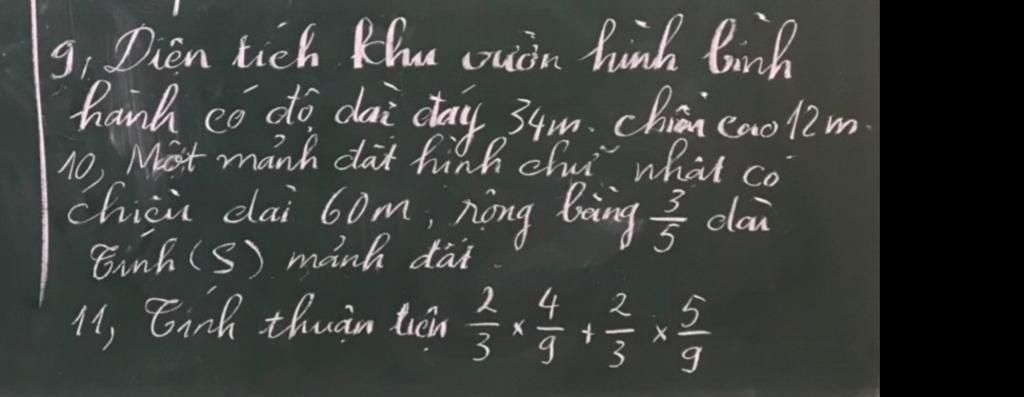 9, Diện tích khu vườn hình bình
hành có độ dài đáy 34m. chiều cao 12m.
10, Một mảnh đất hình chữ nhật có
chiều dài 60m, rộng bằng 3/5 dài
Tính (S) mảnh đất.
11, Tính thuận tiện 2/3 × 4/9 + 2/3 × 5/9